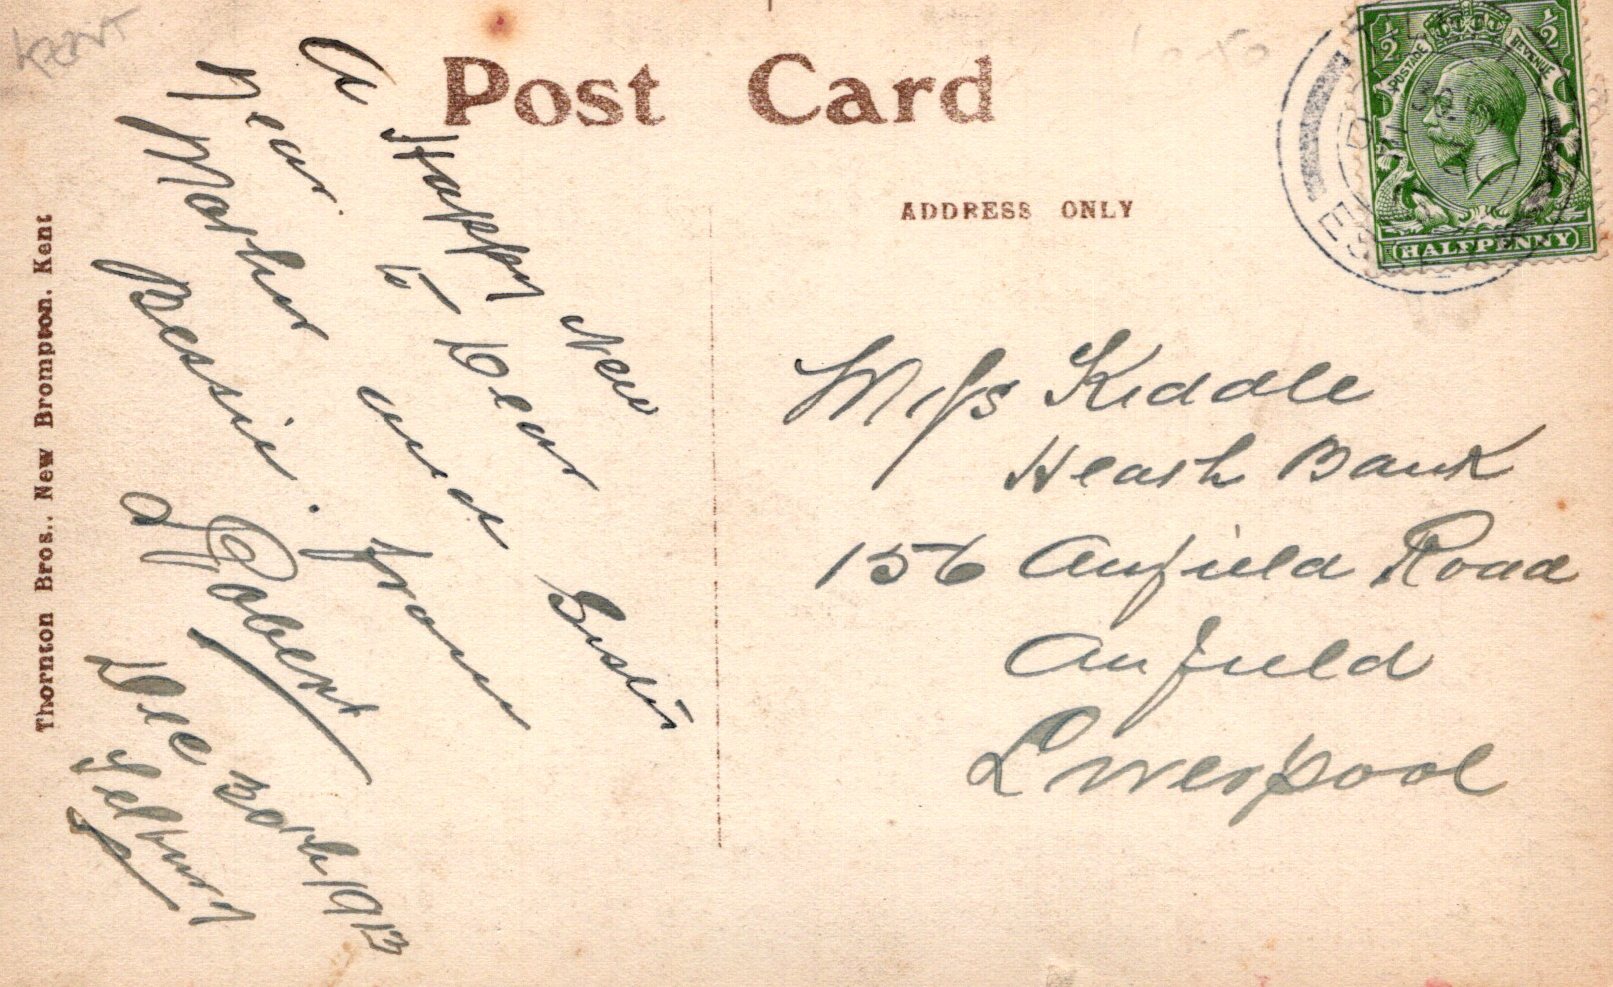 Kent
Post Card
ADDRESS ONLY
A Happy New
Year. to Dear
Mother and Sister
Bessie. from
Robert
Dec 30th 1913
Thornton Bros., New Brompton, Kent
½ ½
POSTAGE REVENUE
HALFPENNY
Miss Kiddle
Heath Bank
156 Anfield Road
Anfield
Liverpool